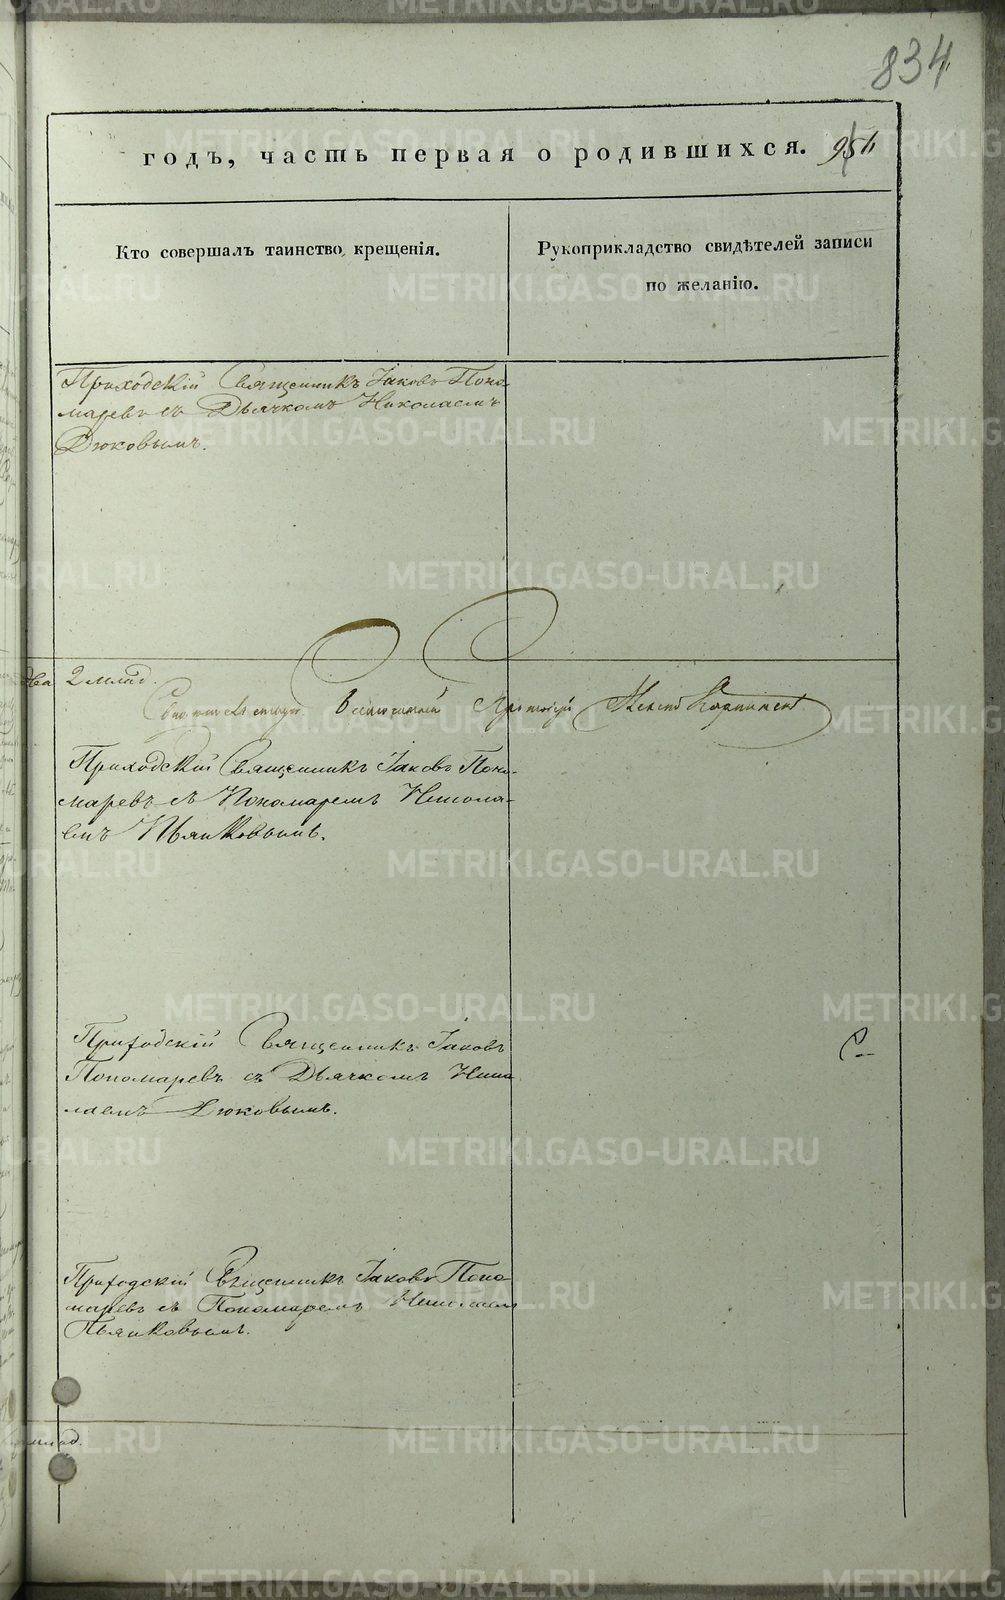 834
годъ, часть первая о родившихся.
Кто совершалъ таинство крещенія.
Рукоприкладство свидѣтелей записи
по желанію.
Приходскій Священникъ Іаковъ Поно
маревъ съ Дьячкомъ Николаемъ
Дюковымъ.
2 млад.
Приходскій Священникъ Іаковъ Поно-
маревъ съ Пономаремъ Никола-
емъ Пьянковымъ.
Приходскій Священникъ Іаковъ
Пономаревъ съ Дьячкомъ Нико
лаемъ Дюковымъ.
Приходскій Священникъ Іаковъ Поно
маревъ съ Пономаремъ Николаемъ
Пьянковымъ.
млад.
METRIKI.GASO-URAL.RU